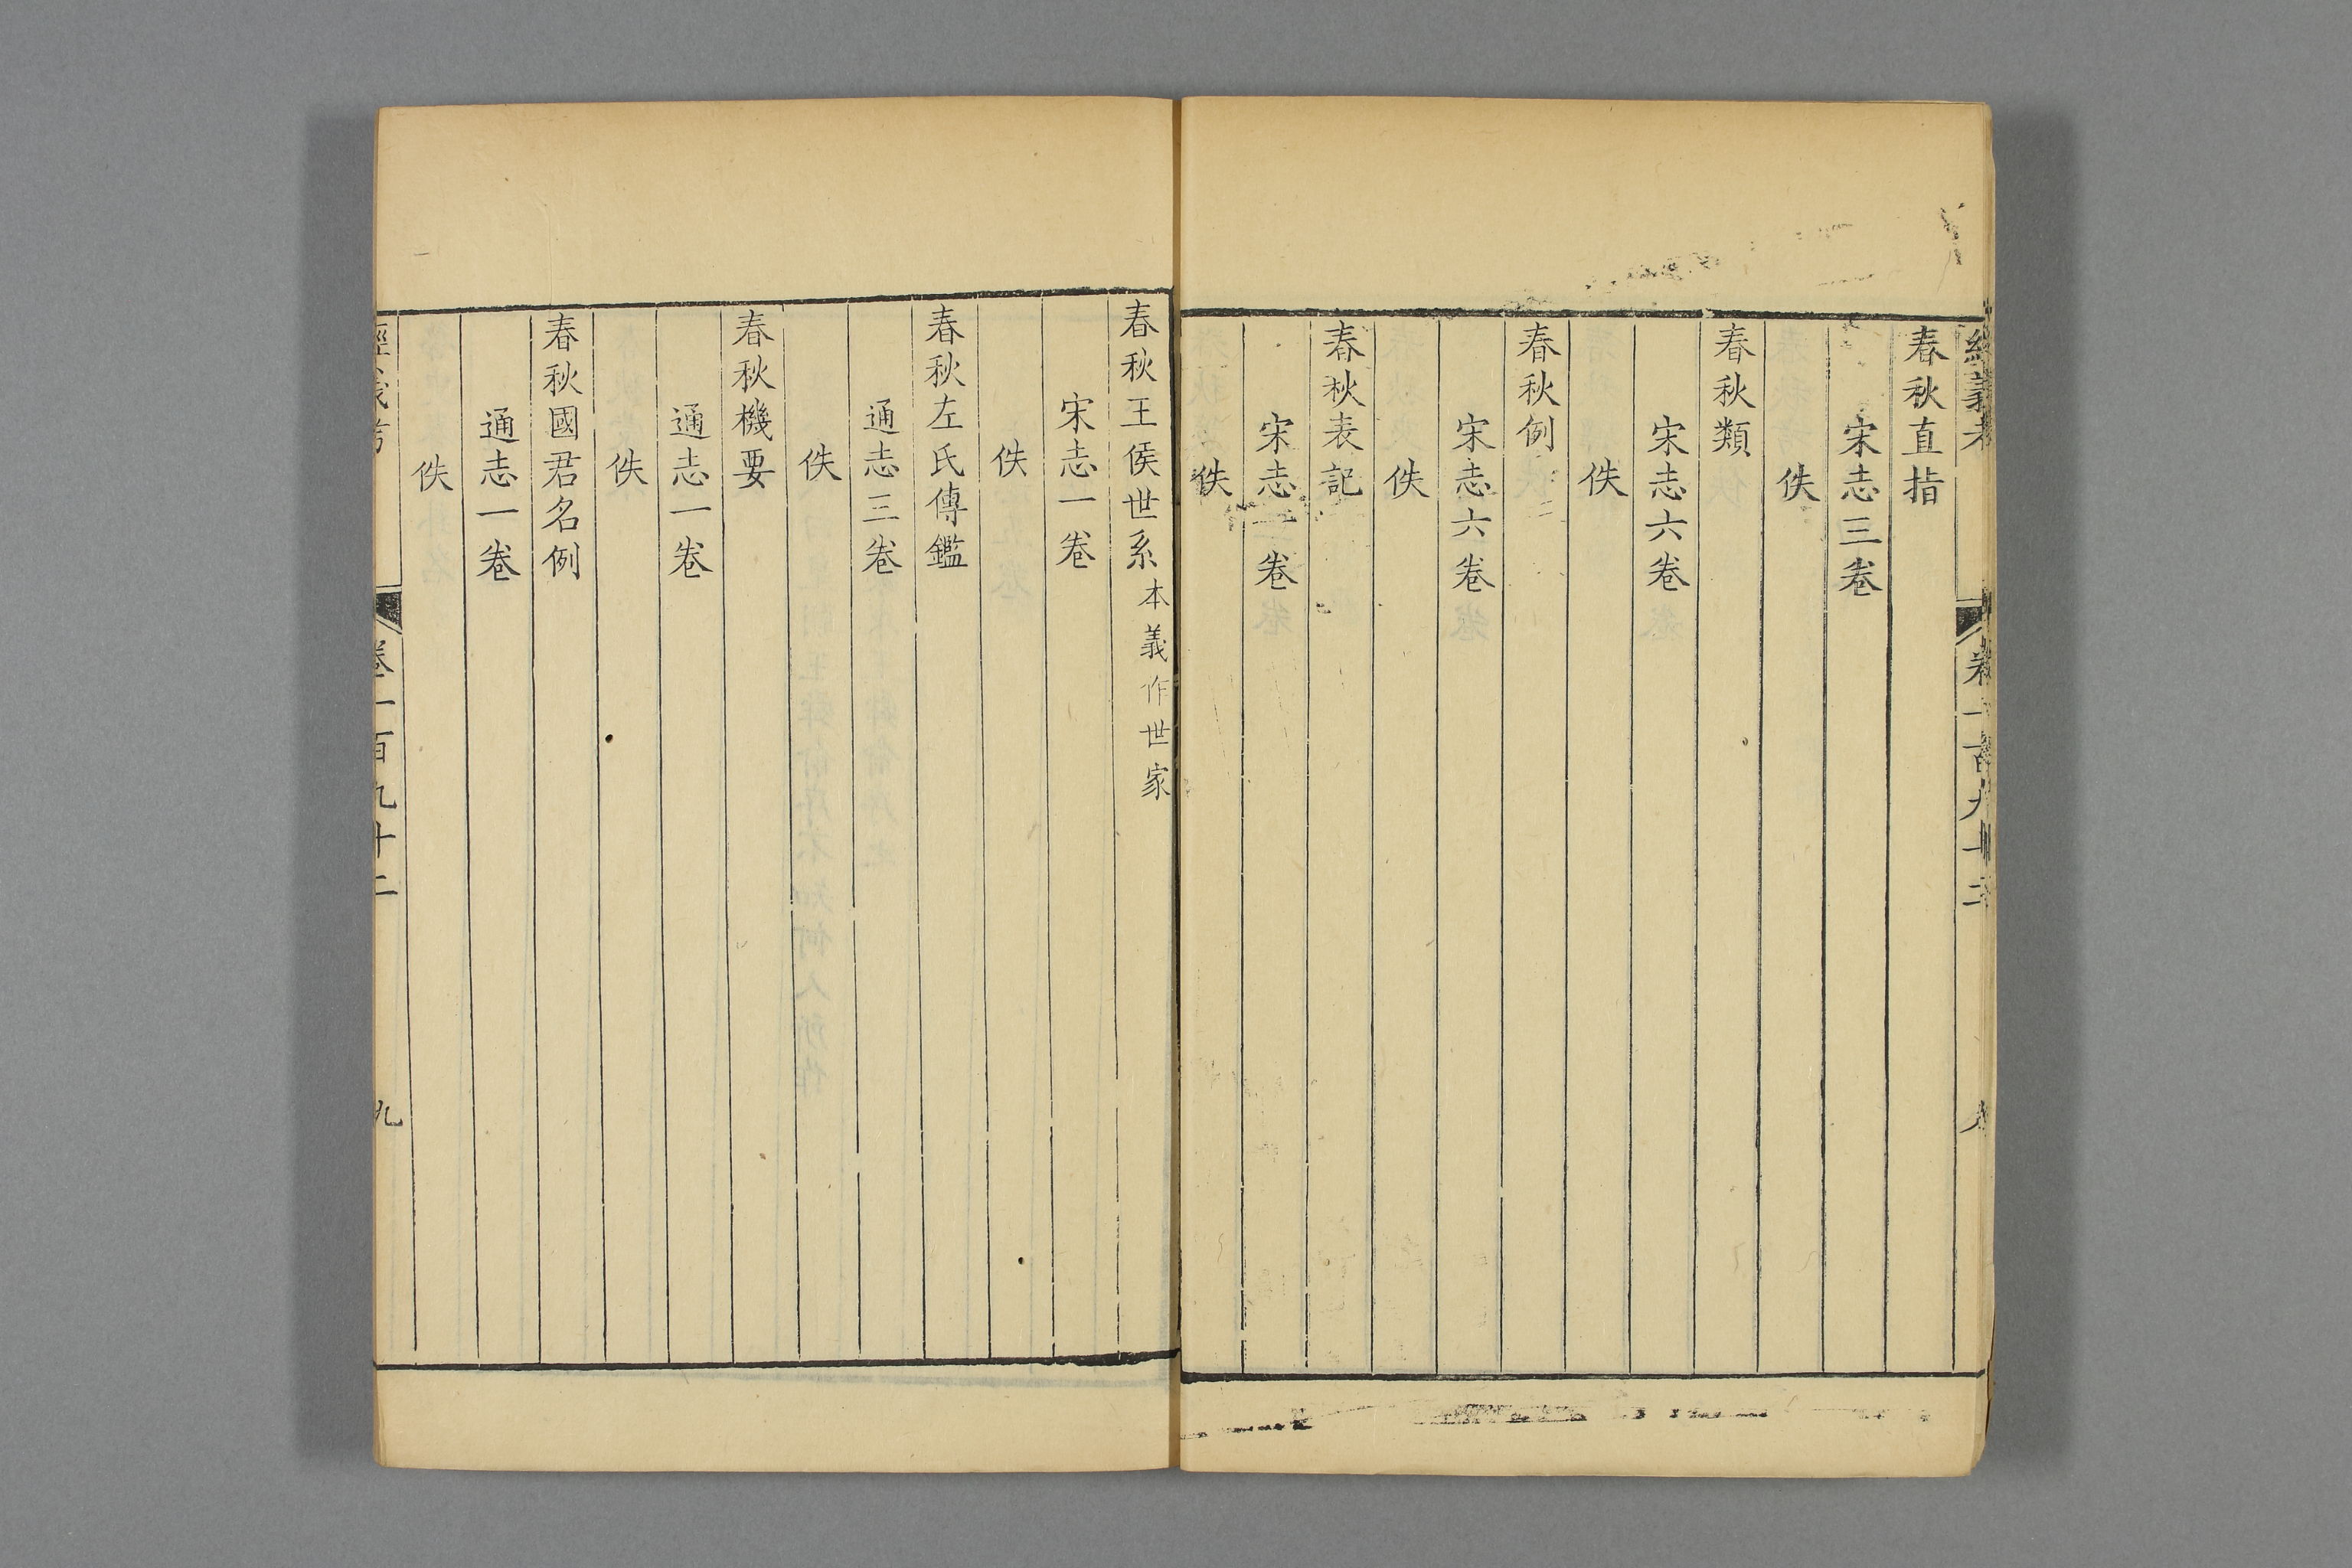 經義考 卷一百九十二 八
春秋直指
宋志三卷
佚
春秋類
宋志六卷
佚
春秋例
宋志六卷
佚
春秋表記
宋志一卷
佚
春秋王侯世系本義作世家
宋志一卷
佚
春秋左氏傳鑑
通志三卷
佚
春秋機要
通志一卷
佚
春秋國君名例
通志一卷
佚
經義考 卷一百九十二 九